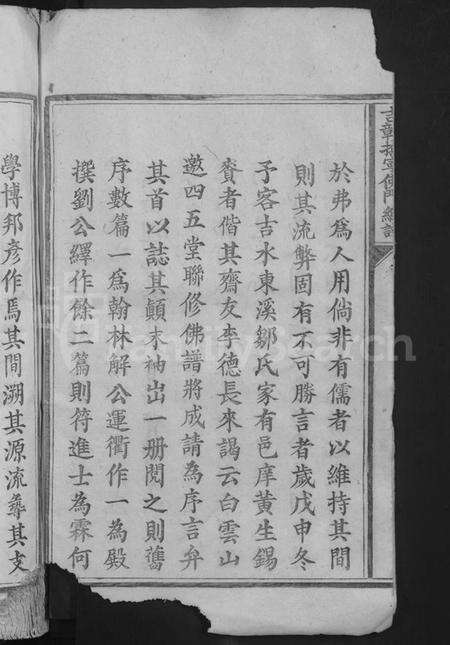 於弗為人用倘非有儒者以維持其間
則其流弊固有不可勝言者歲戊申冬
予客吉水東溪鄒氏家有邑庠黃生錫
賚者偕其齋友李德長來謁云白雲山
邀四五堂聯修佛譜將成請為序言弁
其首以誌其顛末袖出一册閱之則舊
序數篇一為翰林解公運衢作一為殿
撰劉公繹作餘二篇則符進士為霖何
學博邦彥作焉其間溯其源流彝其支
FamilySearch